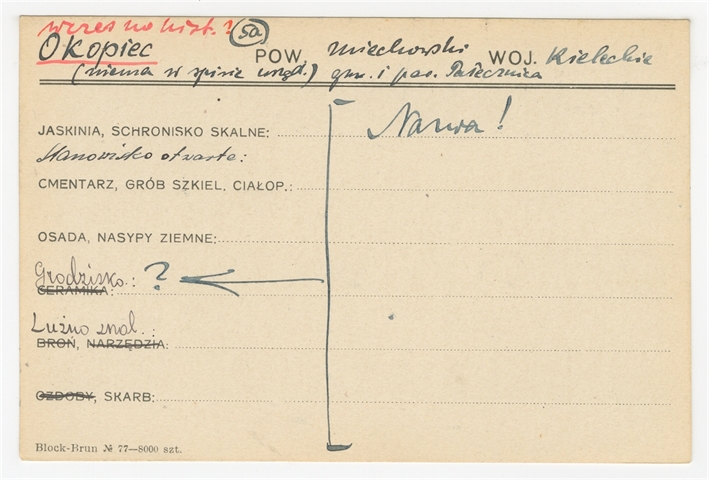 wczesno hist. ?
Okopiec (5a) POW. miechowski WOJ. Kieleckie
(niema w spisie urzęd.) gm. i par.
JASKINIA, SCHRONISKO SKALNE: Nazwa!
Stanowisko otwarte:
CMENTARZ, GRÓB SZKIEL. CIAŁOP.:
OSADA, NASYPY ZIEMNE:
Grodzisko.: ?
CERAMIKA:
Luźno znal. :
BROŃ, NARZĘDZIA:
OZDOBY, SKARB:
Block-Brun № 77—8000 szt.